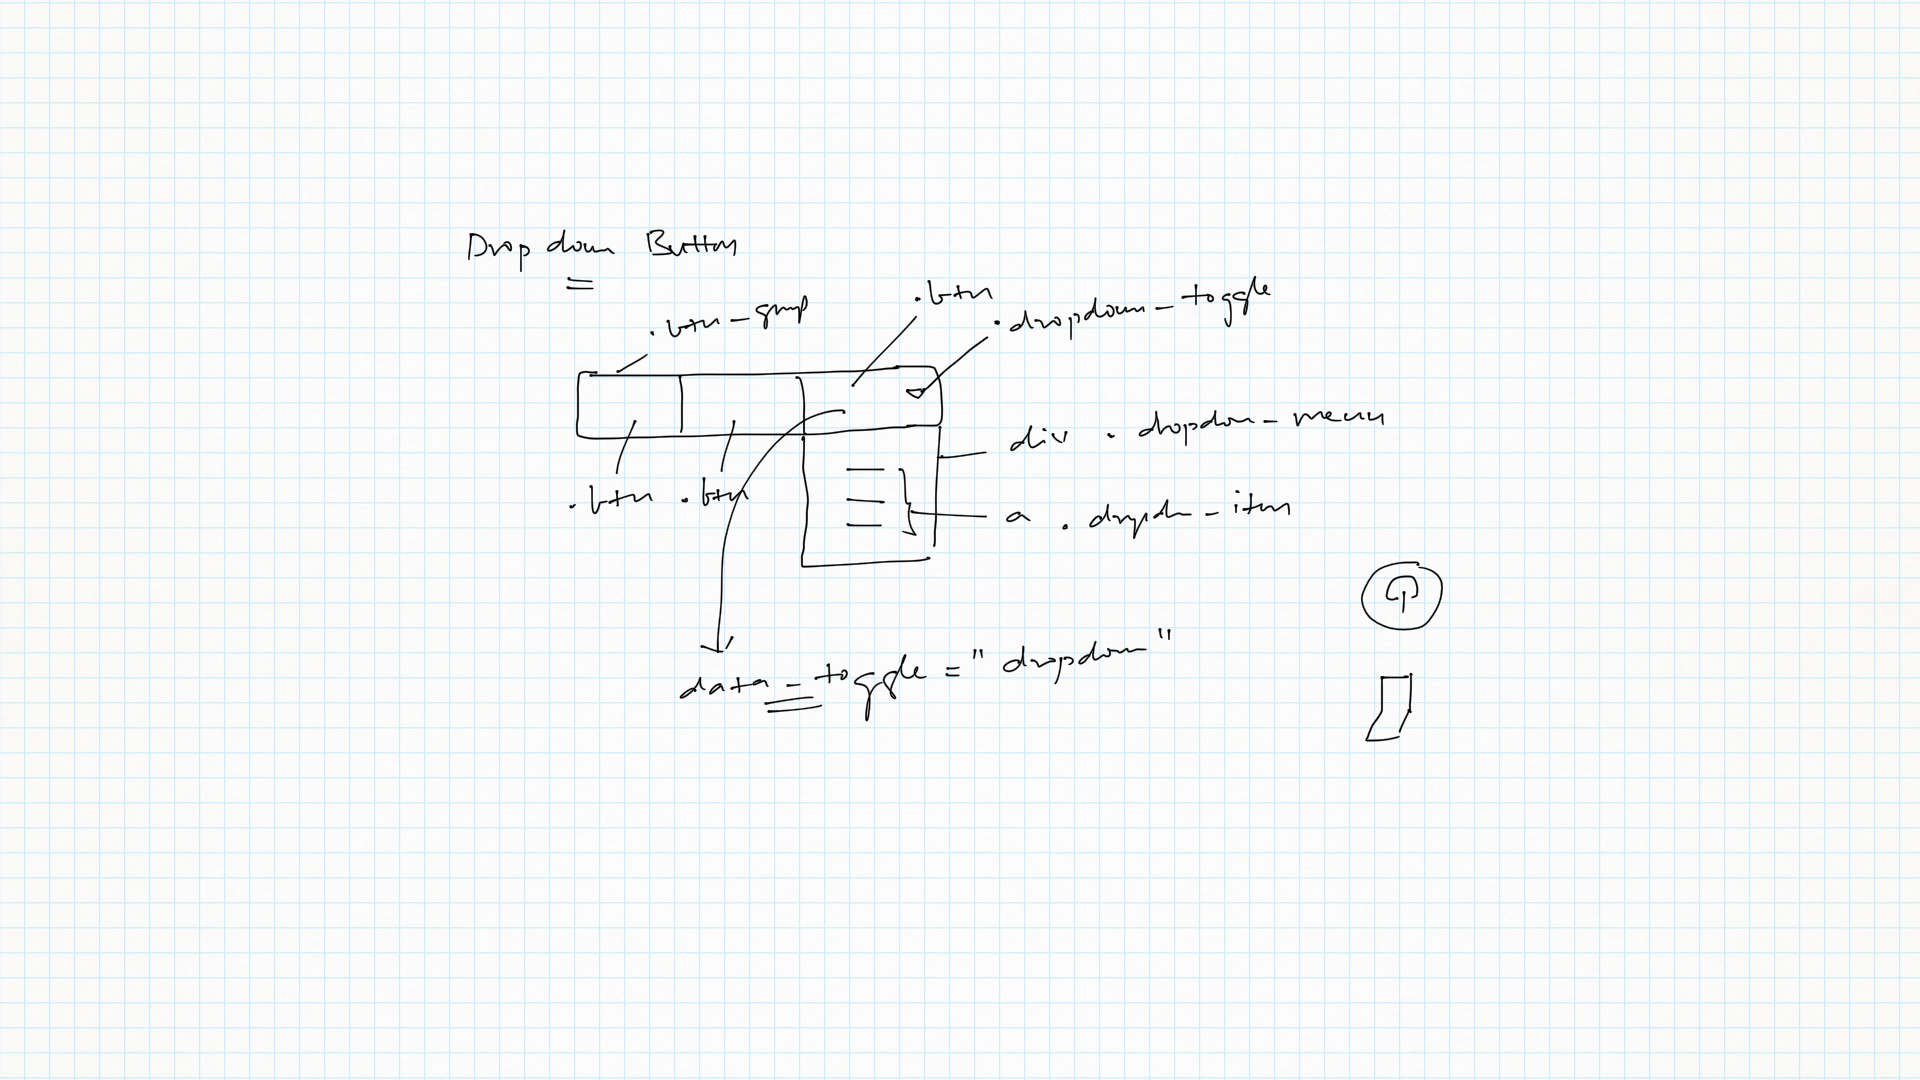 Dropdown Button
.btn-group
.btn
.dropdown-toggle
div . dropdown-menu
.btn .btn
a . dropdn-item
data-toggle="dropdown"